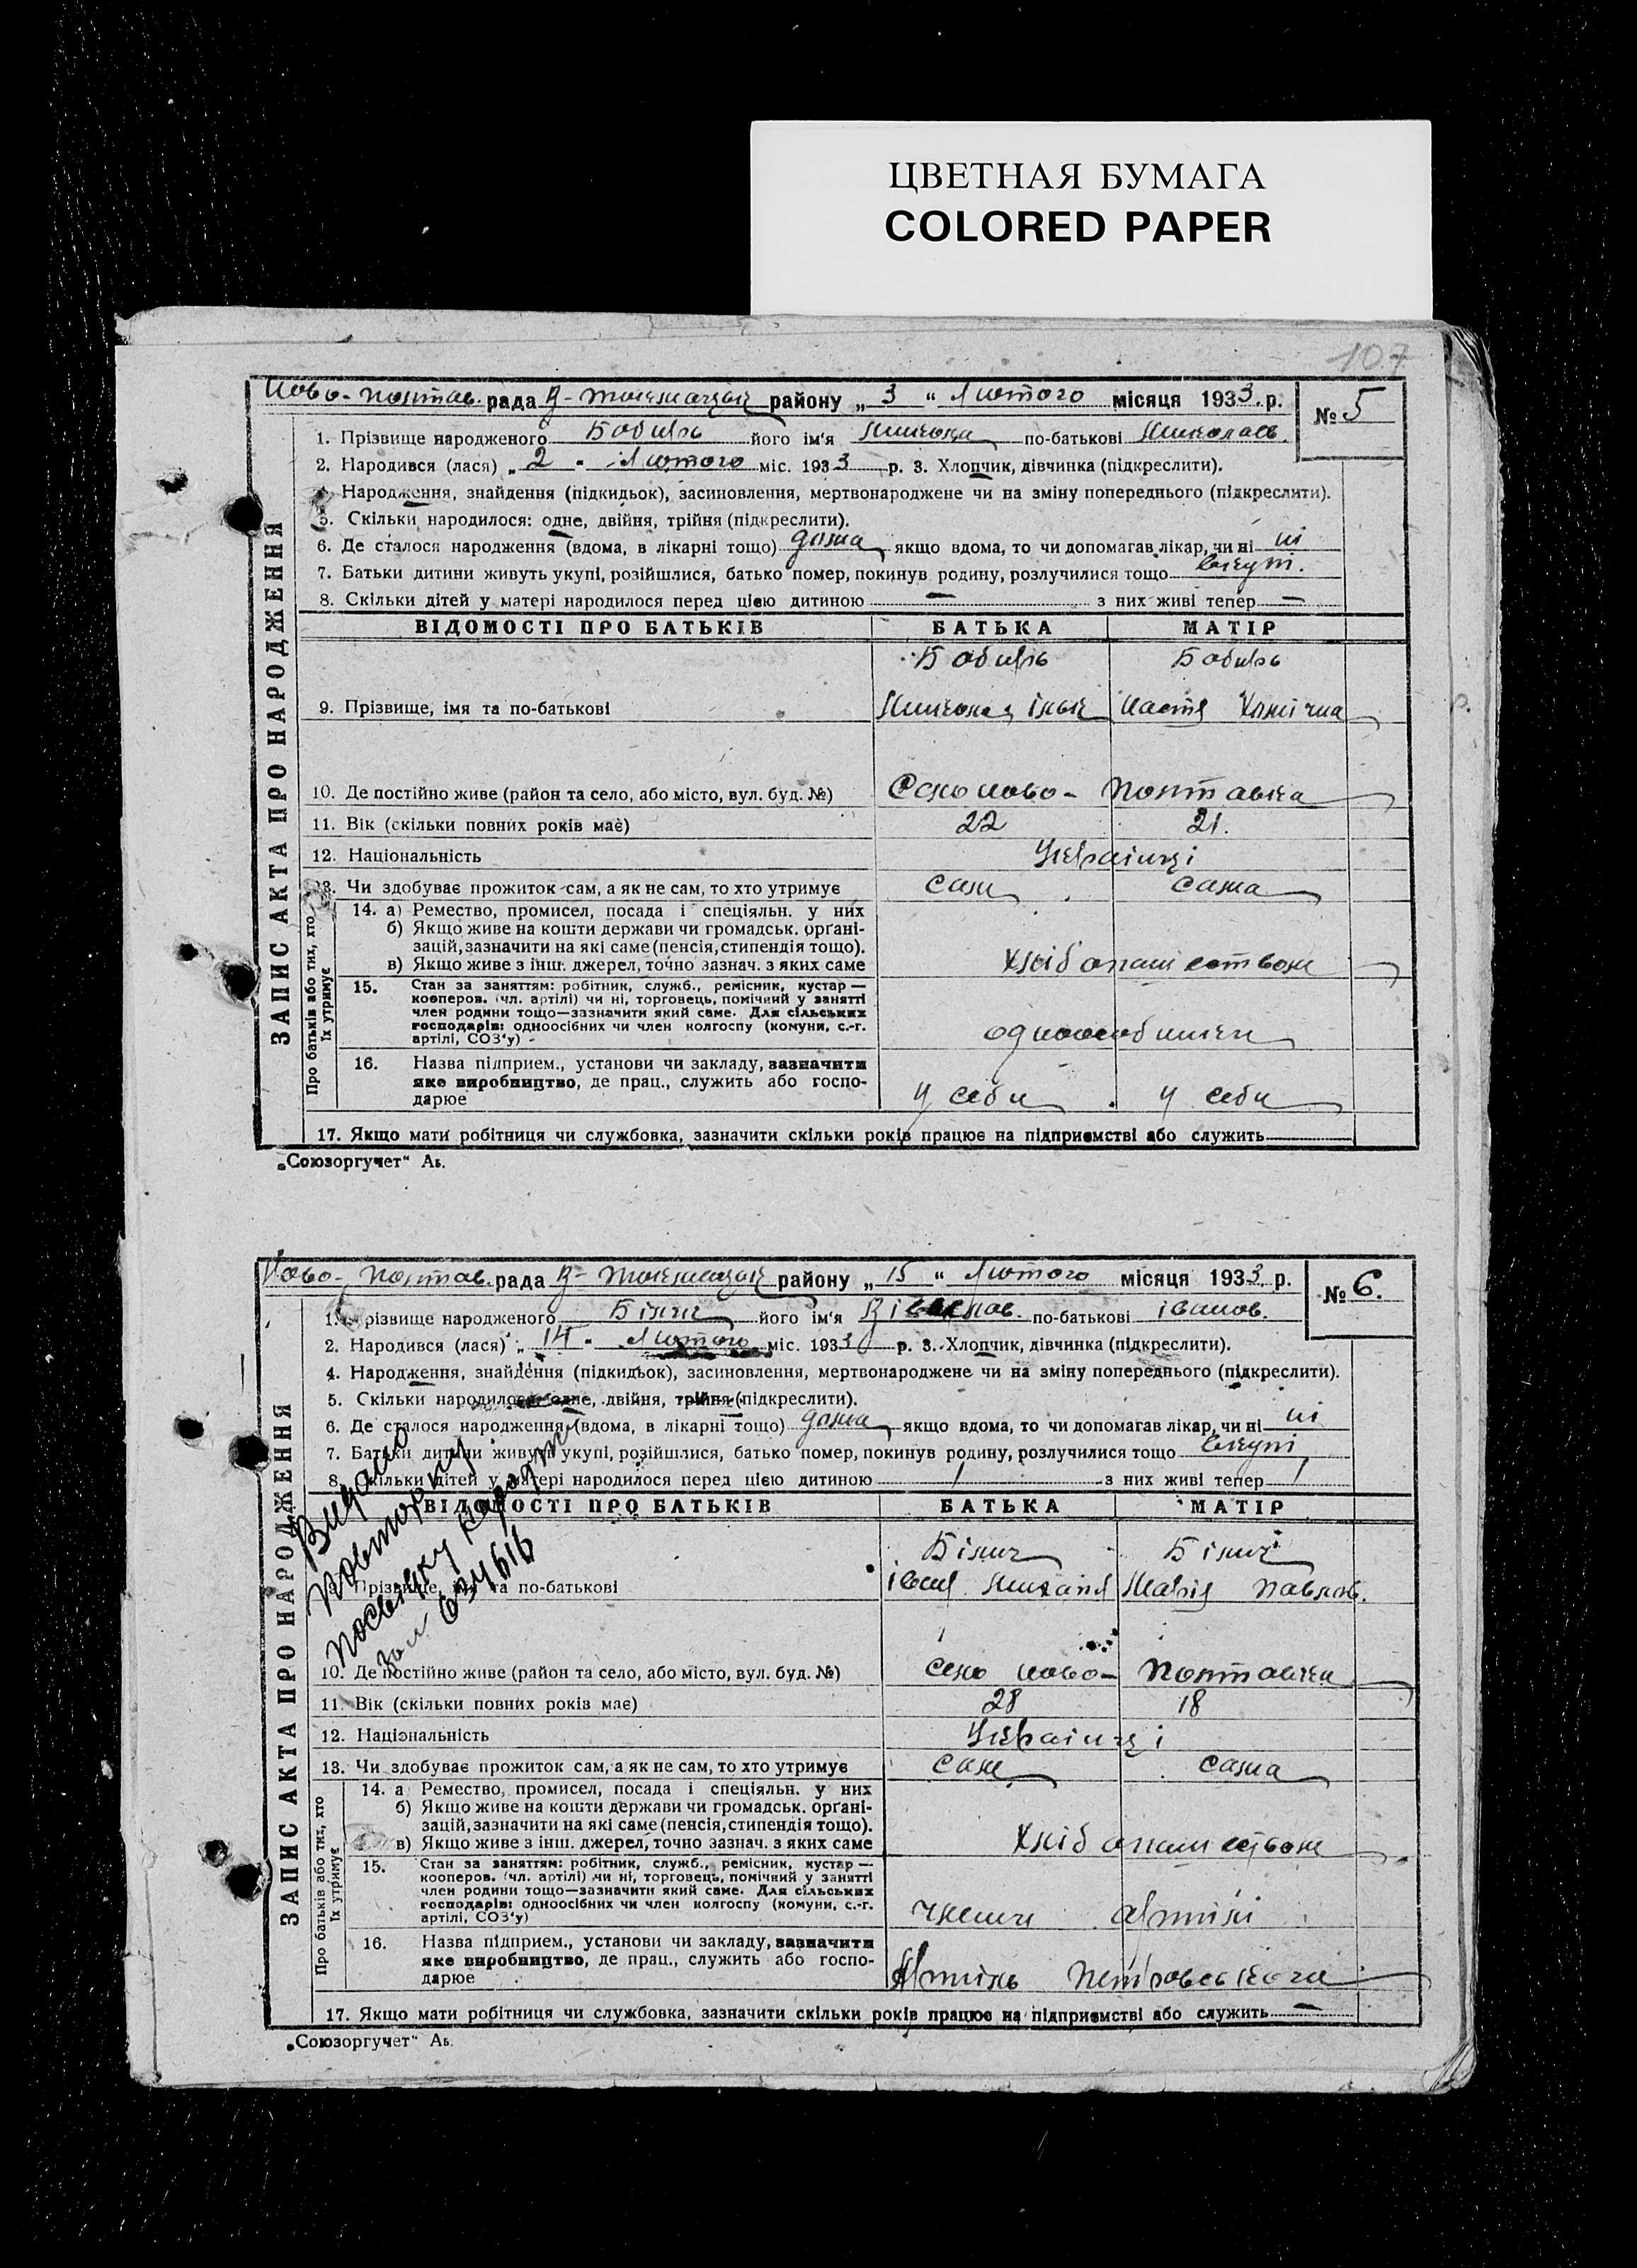 ЦВЕТНАЯ БУМАГА
COLORED PAPER
107
Ново-Полтав. рада В-Токмацьк району „ 3 “ Лютого місяця 1933 р. № 5
1. Прізвище народженого Бобирь його ім'я Микола по-батькові Миколаєв.
2. Народився (лася) „ 2 “ Лютого міс. 1933 р. 3. Хлопчик, дівчинка (підкреслити).
Народження, знайдення (підкидьок), засиновлення, мертвонароджене чи на зміну попереднього (підкреслити).
5. Скільки народилося: одне, двійня, трійня (підкреслити).
6. Де сталося народження (вдома, в лікарні тощо) дома якщо вдома, то чи допомагав лікар, чи ні ні
7. Батьки дитини живуть укупі, розійшлися, батько помер, покинув родину, розлучилися тощо вкупі.
8. Скільки дітей у матері народилося перед цією дитиною — з них живі тепер —
ВІДОМОСТІ ПРО БАТЬКІВ БАТЬКА МАТІР
Бобирь Бобирь
9. Прізвище, імя та по-батькові Микола Настя
10. Де постійно живе (район та село, або місто, вул. буд. №) Село Ново-Полтавка
11. Вік (скільки повних років має) 22 21.
12. Національність Українці
13. Чи здобуває прожиток сам, а як не сам, то хто утримує сам сама
14. а) Ремество, промисел, посада і спеціяльн. у них
б) Якщо живе на кошти держави чи громадськ. органі-
зацій, зазначити на які саме (пенсія, стипендія тощо).
в) Якщо живе з інш. джерел, точно зазнач. з яких саме
хліборобством
15. Стан за заняттям: робітник, служб., ремісник, кустар —
кооперов. (чл. артілі) чи ні, торговець, помічний у занятті
член родини тощо—зазначити який саме. Для сільських
господарів: одноосібних чи член колгоспу (комуни, с.-г.
артілі, СОЗ'у)
одноособники
16. Назва підприєм., установи чи закладу, зазначити
яке виробництво, де прац., служить або госпо-
дарює
у себи у себи
17. Якщо мати робітниця чи службовка, зазначити скільки років працює на підприємстві або служить
ЗАПИС АКТА ПРО НАРОДЖЕННЯ
Про батьків або тих, хто
їх утримує
„Союзоргучет“ Аь.
Ново-Полтав. рада В-Токмацьк району „ 15 “ Лютого місяця 1933 р. № 6.
1. Прізвище народженого Білич його ім'я по-батькові Іванов.
2. Народився (лася) „ 14 “ Лютого міс. 1933 р. 3. Хлопчик, дівчинка (підкреслити).
4. Народження, знайдення (підкидьок), засиновлення, мертвонароджене чи на зміну попереднього (підкреслити).
5. Скільки народилося: одне, двійня, трійня (підкреслити).
6. Де сталося народження (вдома, в лікарні тощо) дома якщо вдома, то чи допомагав лікар, чи ні ні
7. Батьки дитини живуть укупі, розійшлися, батько помер, покинув родину, розлучилися тощо вкупі
8. Скільки дітей у матері народилося перед цією дитиною 1 з них живі тепер 1
ВІДОМОСТІ ПРО БАТЬКІВ БАТЬКА МАТІР
Білич Білич
9. Прізвище, імя та по-батькові Іван Михайл Марія Павлов.
10. Де постійно живе (район та село, або місто, вул. буд. №) село Ново-Полтавка
11. Вік (скільки повних років має) 28 18
12. Національність Українці
13. Чи здобуває прожиток сам, а як не сам, то хто утримує сам сама
14. а) Ремество, промисел, посада і спеціяльн. у них
б) Якщо живе на кошти держави чи громадськ. органі-
зацій, зазначити на які саме (пенсія, стипендія тощо).
в) Якщо живе з інш. джерел, точно зазнач. з яких саме
15. Стан за заняттям: робітник, служб., ремісник, кустар —
кооперов. (чл. артілі) чи ні, торговець, помічний у занятті
член родини тощо—зазначити який саме. Для сільських
господарів: одноосібних чи член колгоспу (комуни, с.-г.
артілі, СОЗ'у)
члени артілі
16. Назва підприєм., установи чи закладу, зазначити
яке виробництво, де прац., служить або госпо-
дарює
Артіль Петровського
17. Якщо мати робітниця чи службовка, зазначити скільки років працює на підприємстві або служить —
ЗАПИС АКТА ПРО НАРОДЖЕННЯ
Про батьків або тих, хто
їх утримує
Видано
повторну
634616
„Союзоргучет“ Аь.